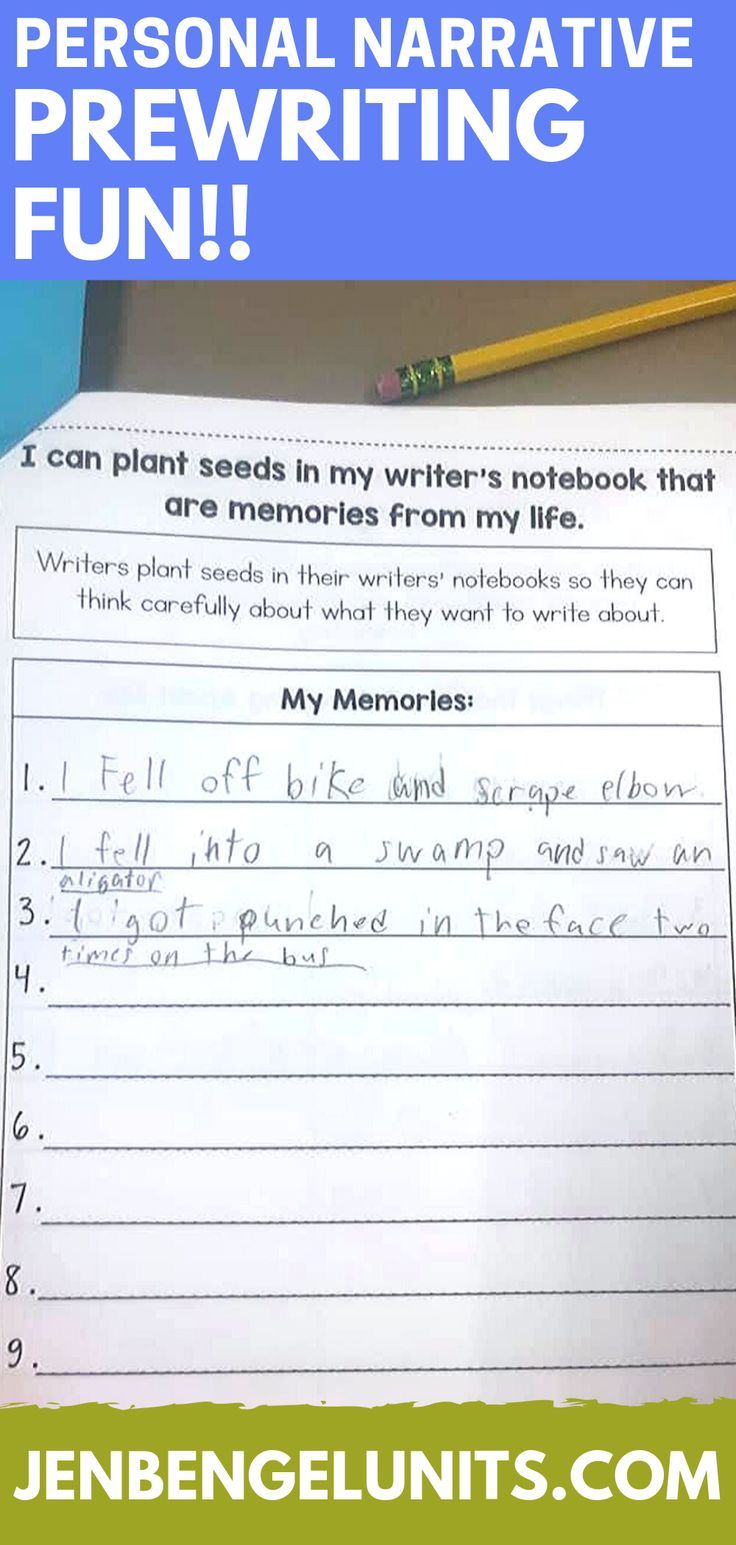 PERSONAL NARRATIVE
PREWRITING
FUN!!
I can plant seeds in my writer's notebook that
are memories from my life.
Writers plant seeds in their writers' notebooks so they can
think carefully about what they want to write about.
My Memories:
1. I Fell off bike and scrape elbow
2. I fell into a swamp and saw an
aligator
3. I got punched in the face two
times on the bus
4.
5.
6.
7.
8.
9.
JENBENGELUNITS.COM